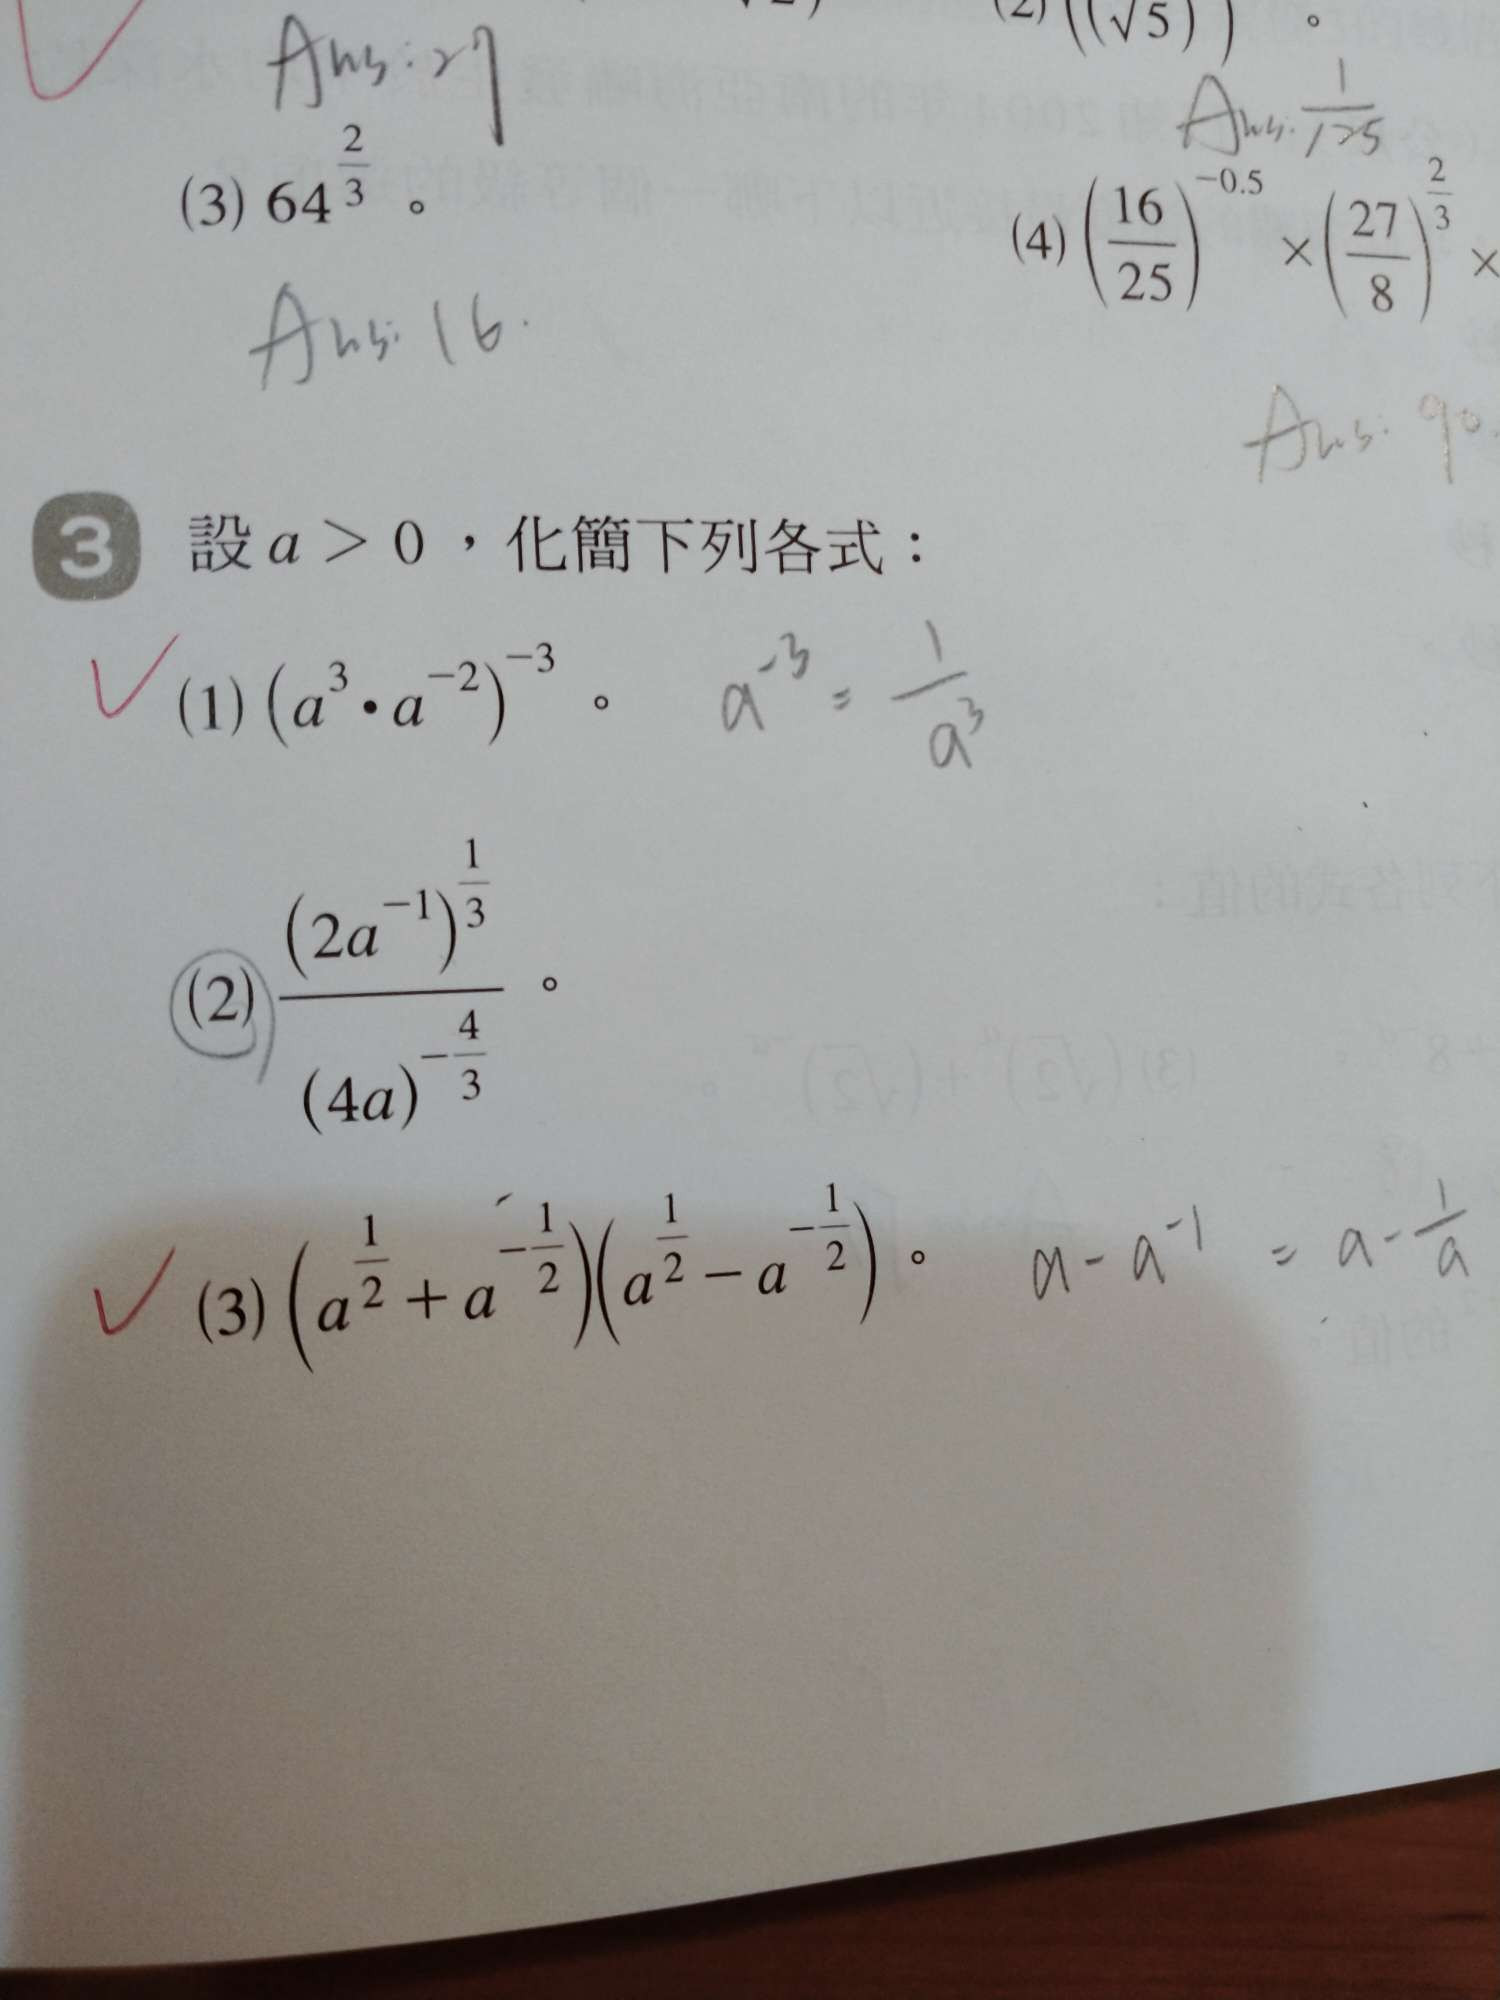 (2) ((√5)) 。
Ans: 27
Ans: 1/125
(3) 64^(2/3) 。
(4) (16/25)^(-0.5) × (27/8)^(2/3) ×
Ans: 16.
Ans: 90.
3 設 a > 0，化簡下列各式：
(1) (a^3 • a^(-2))^(-3) 。 a^(-3) = 1/a^3
(2) (2a^(-1))^(1/3) / (4a)^(-4/3) 。
(3) (a^(1/2) + a^(-1/2))(a^(1/2) − a^(-1/2)) 。 a - a^(-1) = a - 1/a